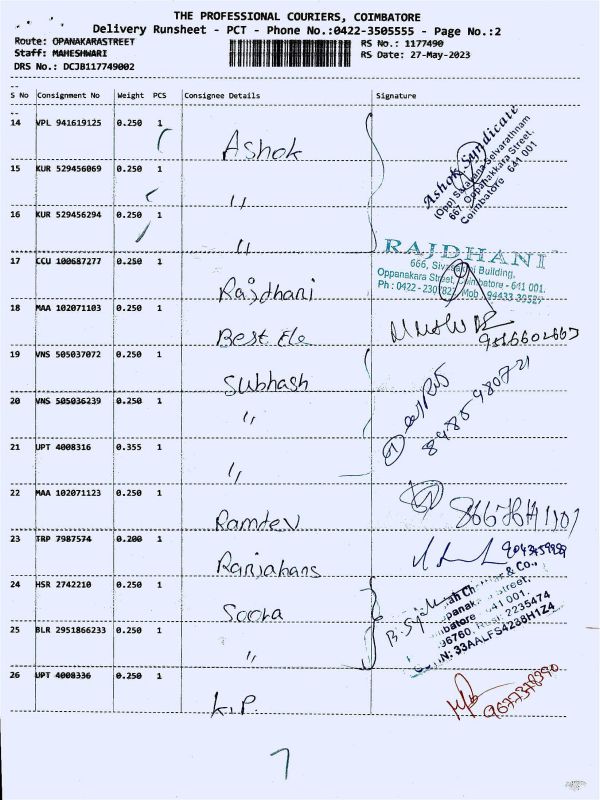 THE PROFESSIONAL COURIERS, COIMBATORE
Delivery Runsheet - PCT - Phone No.:0422-3505555 - Page No.:2
Route: OPANAKARASTREET
Staff: MAHESHWARI
DRS No.: DCJB117749002
RS No.: 1177490
RS Date: 27-May-2023
S No Consignment No Weight PCS Consignee Details Signature
14 VPL 941619125 0.250 1 Ashok
Ashok Syndicate
(Opp) Saravana Selvarathnam
667, Oppanakkara Street,
Coimbatore 641 001
15 KUR 529456069 0.250 1 "
16 KUR 529456294 0.250 1 "
17 CCU 100687277 0.250 1 Rajdhani
RAJDHANI
666, Building,
Oppanakara Street, Coimbatore - 641 001.
Ph : 0422 - Mob : 94433
18 MAA 102071103 0.250 1 Best Ele
19 VNS 505037072 0.250 1 Subhash
20 VNS 505036239 0.250 1 "
21 UPT 4008316 0.355 1 "
22 MAA 102071123 0.250 1 Ramdev
23 TRP 7987574 0.200 1
24 HSR 2742210 0.250 1
& Co.,
Street,
641 001.
2235474
N: 33AALFS4238H1Z4
25 BLR 2951866233 0.250 1 "
26 UPT 4008336 0.250 1 K.P.
7